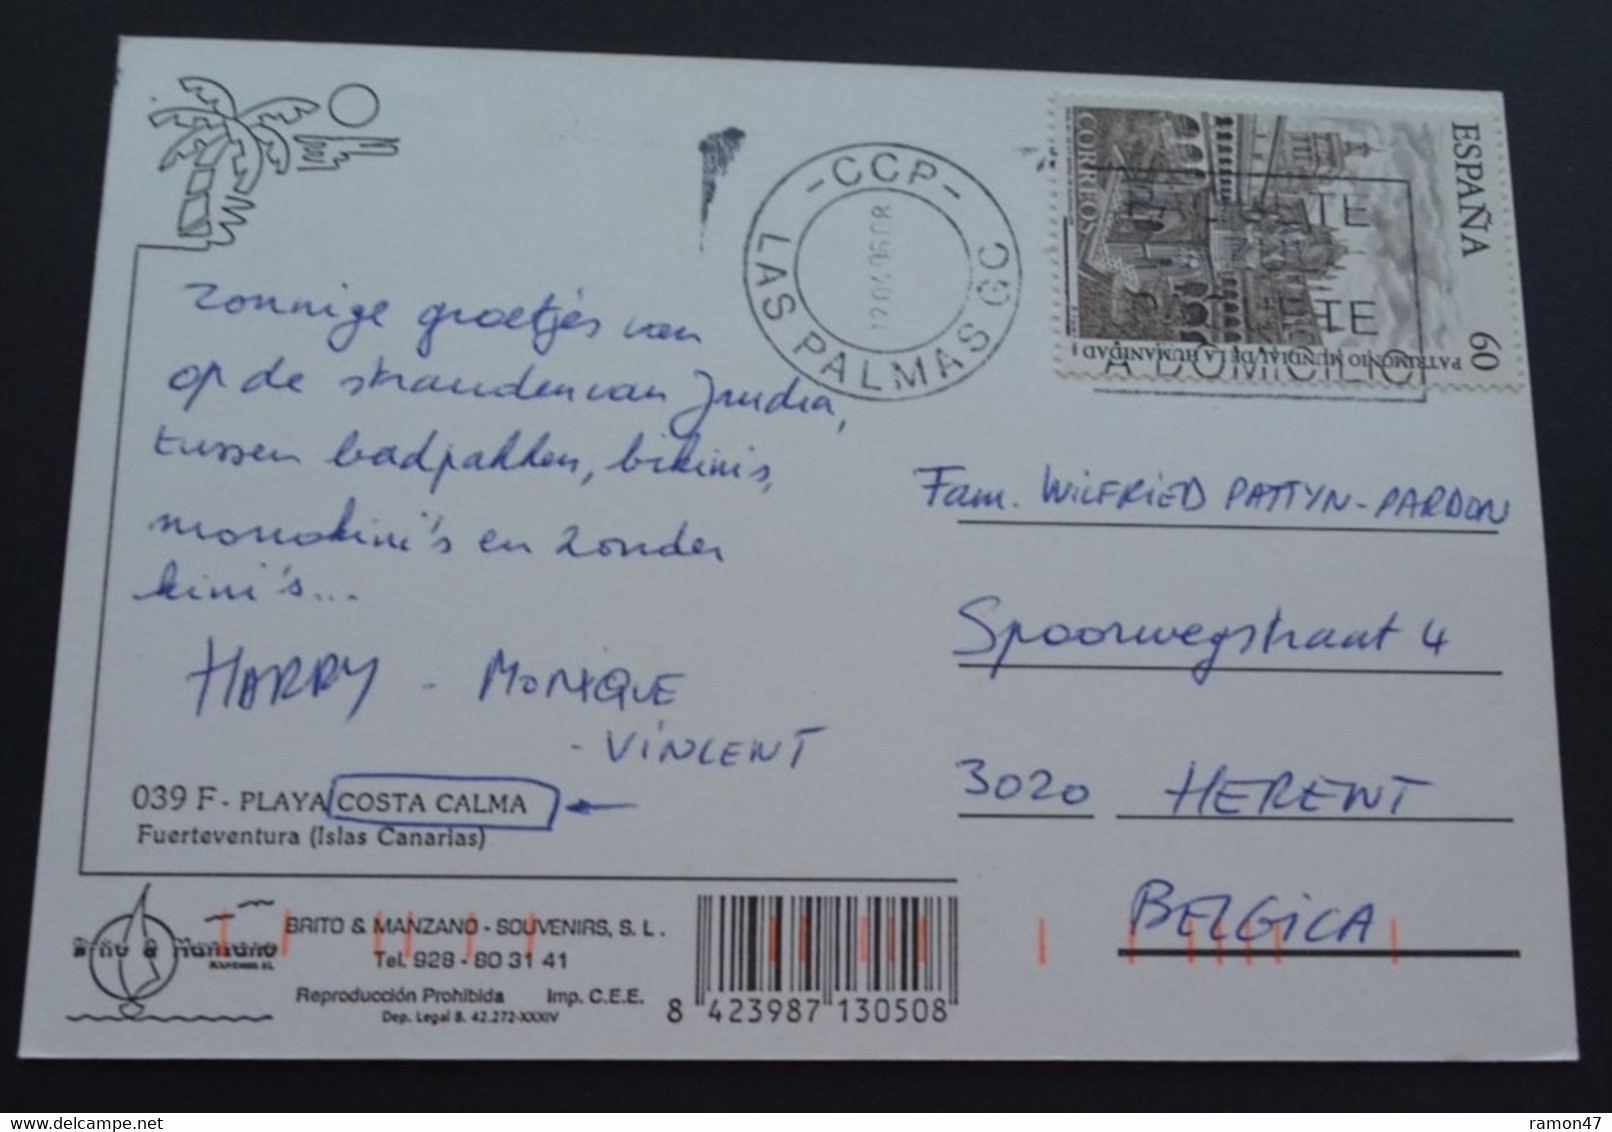 zonnige groetjes van
op de stranden van Jandia,
tussen badpakken, bikinis,
monokini's en zonder
kini's...
HARRY - MONIQUE
- VINCENT
039 F - PLAYA COSTA CALMA
Fuerteventura (Islas Canarias)
Brito & Manzano
SOUVENIRS, S.L.
BRITO & MANZANO - SOUVENIRS, S. L.
Tel. 928 - 80 31 41
Reproducción Prohibida Imp. C.E.E.
Dep. Legal B. 42.272-XXXIV
8 423987 130508
-CCP-
LAS PALMAS GC
ESPAÑA
60
CORREOS
PATRIMONIO MUNDIAL DE LA HUMANIDAD
A DOMICILIO
Fam. WILFRIED PATTYN-PARDON
Spoorwegstraat 4
3020 HERENT
BELGICA
ramon47